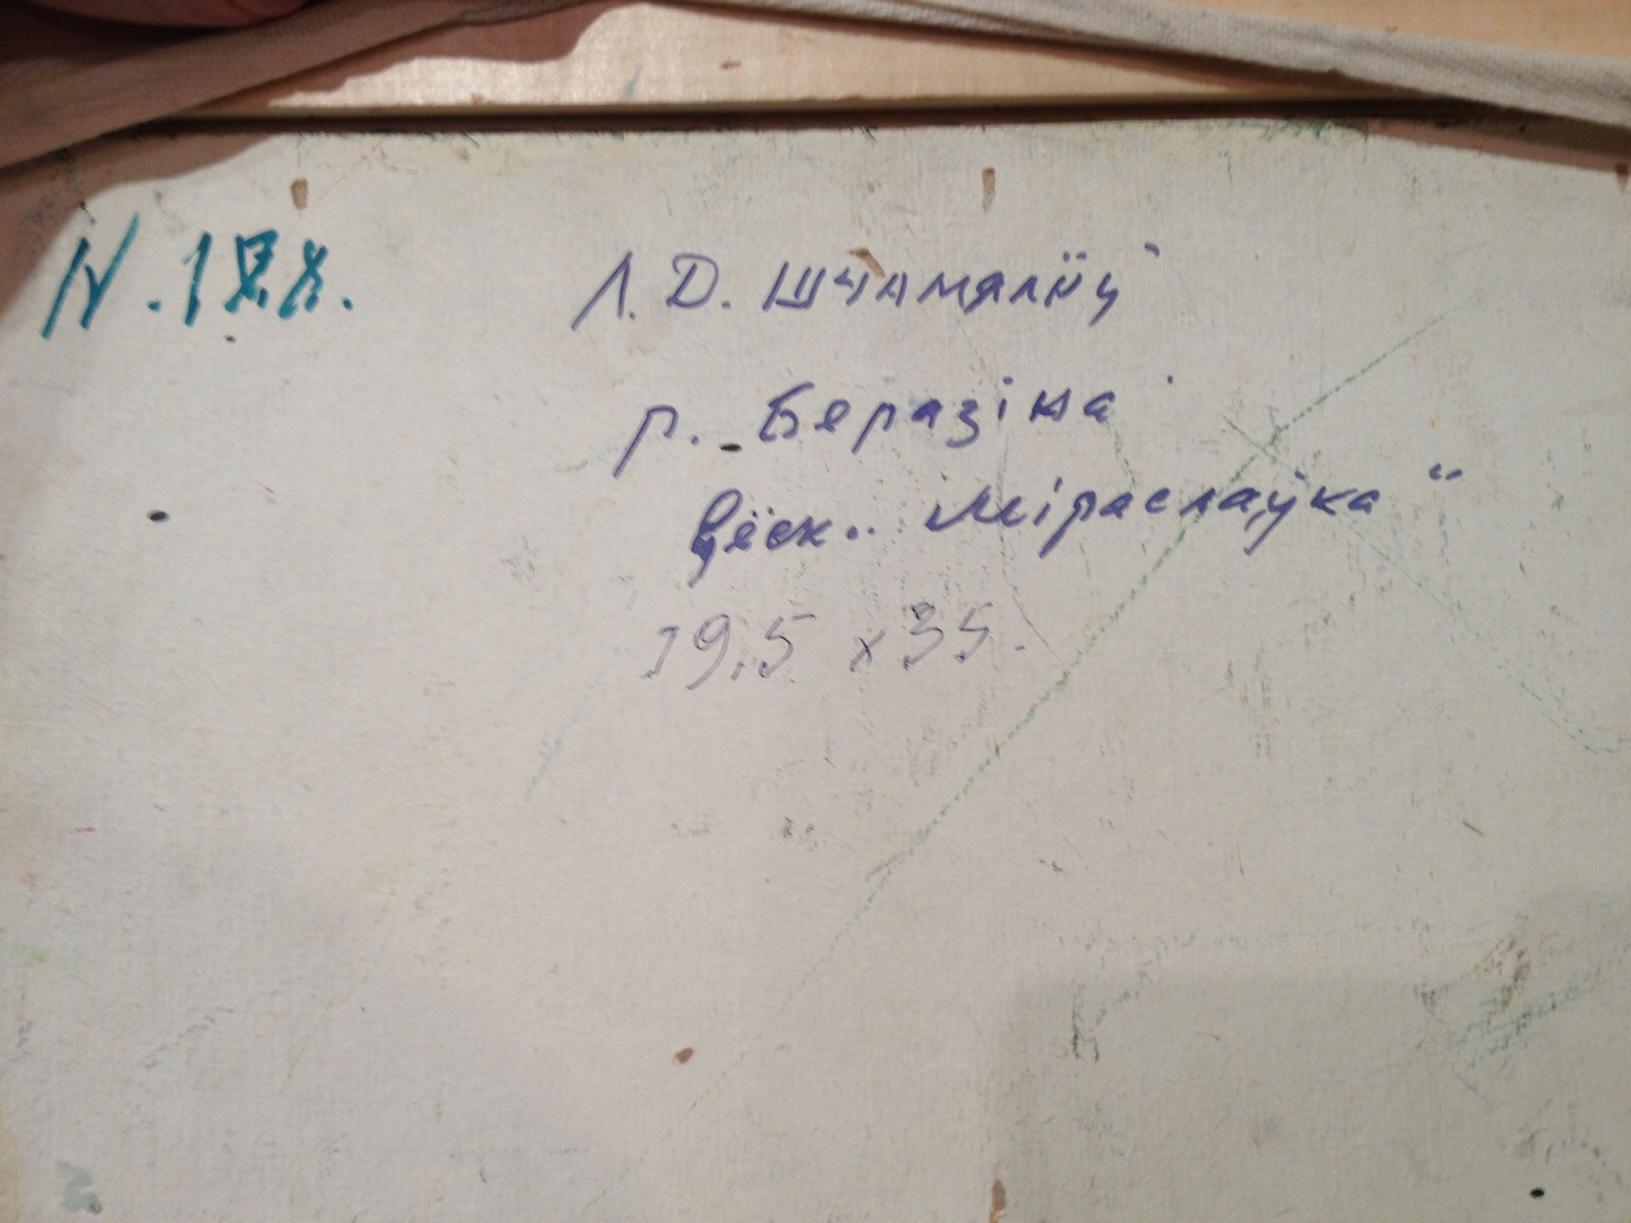 N. 188.
Л. Д. Шчамялёў
р. Беразіна
Вёск.. Міраслаўка"
19,5 x 35.